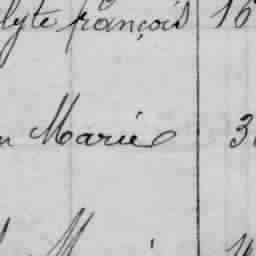 lyte françois 16
n Marie 3